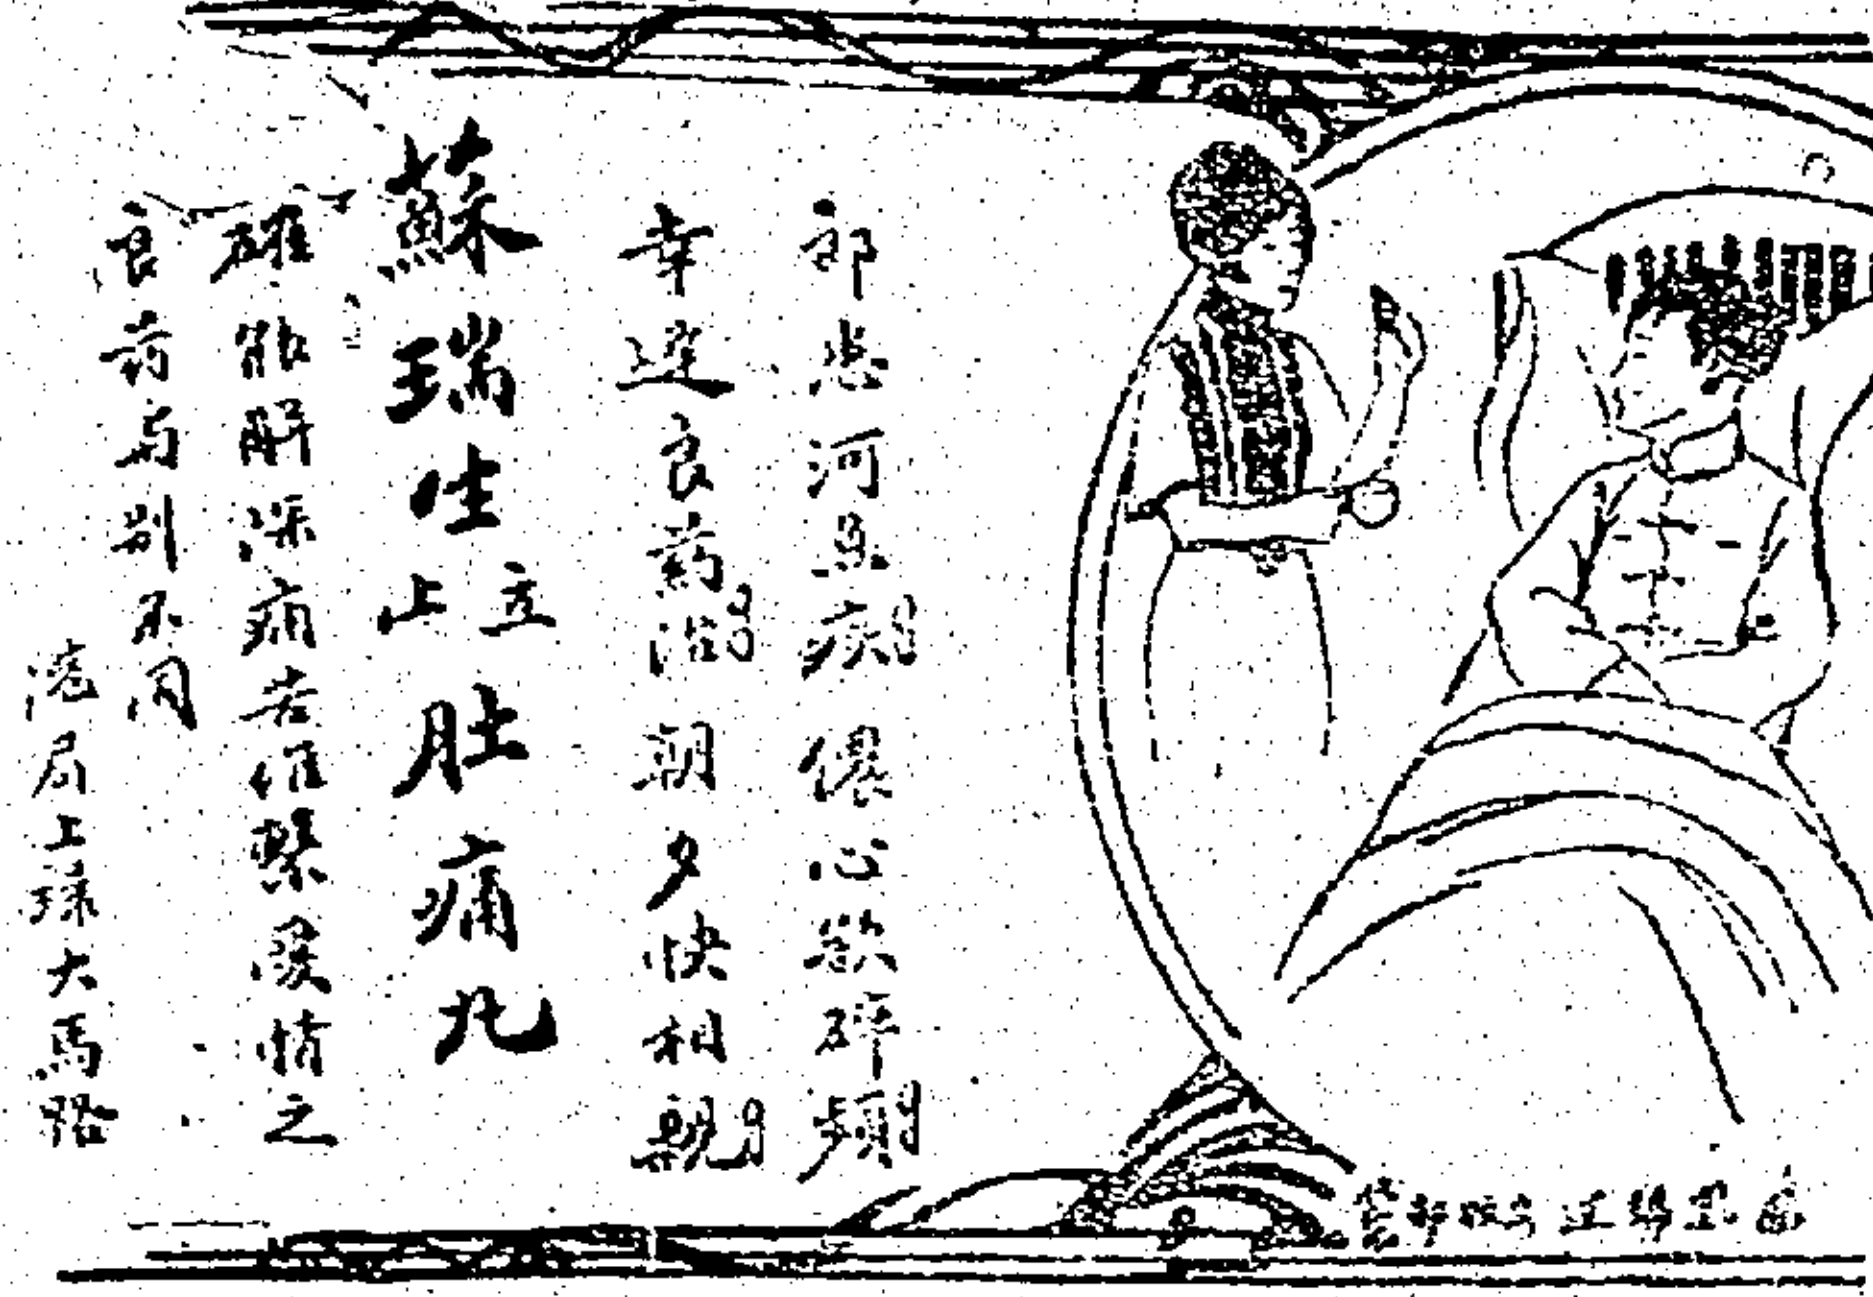 郎患河魚疾儂心欲碎頻
幸逢良药治朝夕快相親
蘇瑞生立止肚痛丸
確能解深痛苦維繫愛情之
良药与别不同
港局上环大馬路